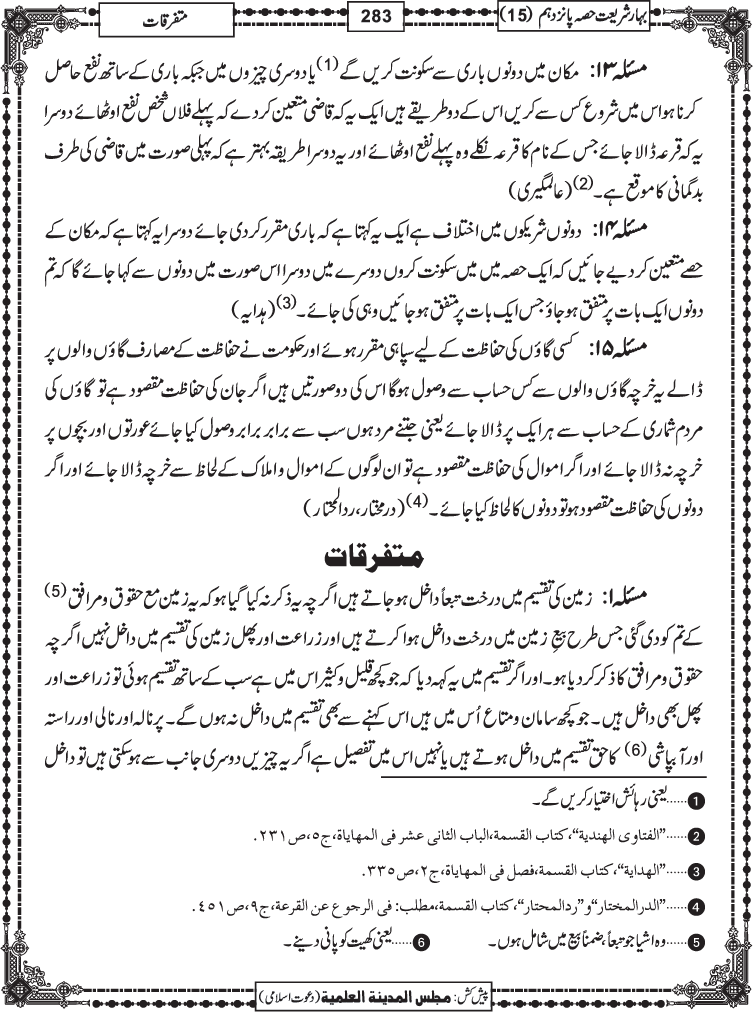 بہارِ شریعت حصہ پانزدہم (15)
283
متفرقات
مسئلہ ۱۳: مکان میں دونوں باری سے سکونت کریں گے (1) یا دوسری چیزوں میں جبکہ باری کے ساتھ نفع حاصل
کرنا ہو اس میں شروع کس سے کریں اس کے دو طریقے ہیں ایک یہ کہ قاضی متعین کر دے کہ پہلے فلاں شخص نفع اوٹھائے دوسرا
یہ کہ قرعہ ڈالا جائے جس کے نام کا قرعہ نکلے وہ پہلے نفع اوٹھائے اور یہ دوسرا طریقہ بہتر ہے کہ پہلی صورت میں قاضی کی طرف
بدگمانی کا موقع ہے۔ (2) (عالمگیری)
مسئلہ ۱۴: دونوں شریکوں میں اختلاف ہے ایک یہ کہتا ہے کہ باری مقرر کر دی جائے دوسرا یہ کہتا ہے کہ مکان کے
حصے متعین کر دیے جائیں کہ ایک حصہ میں میں سکونت کروں دوسرے میں دوسرا اس صورت میں دونوں سے کہا جائے گا کہ تم
دونوں ایک بات پر متفق ہو جاؤ جس ایک بات پر متفق ہو جائیں وہی کی جائے۔ (3) (ہدایہ)
مسئلہ ۱۵: کسی گاؤں کی حفاظت کے لیے سپاہی مقرر ہوئے اور حکومت نے حفاظت کے مصارف گاؤں والوں پر
ڈالے یہ خرچہ گاؤں والوں سے کس حساب سے وصول ہوگا اس کی دو صورتیں ہیں اگر جان کی حفاظت مقصود ہے تو گاؤں کی
مردم شماری کے حساب سے ہر ایک پر ڈالا جائے یعنی جتنے مرد ہوں سب سے برابر برابر وصول کیا جائے عورتوں اور بچوں پر
خرچہ نہ ڈالا جائے اور اگر اموال کی حفاظت مقصود ہے تو ان لوگوں کے اموال و املاک کے لحاظ سے خرچہ ڈالا جائے اور اگر
دونوں کی حفاظت مقصود ہو تو دونوں کا لحاظ کیا جائے۔ (4) (درمختار، ردالمحتار)
متفرقات
مسئلہ ۱: زمین کی تقسیم میں درخت تبعاً داخل ہو جاتے ہیں اگرچہ یہ ذکر نہ کیا گیا ہو کہ یہ زمین مع حقوق و مرافق (5)
کے تم کو دی گئی جس طرح بیعِ زمین میں درخت داخل ہوا کرتے ہیں اور زراعت اور پھل زمین کی تقسیم میں داخل نہیں اگرچہ
حقوق و مرافق کا ذکر کر دیا ہو۔ اور اگر تقسیم میں یہ کہہ دیا کہ جو کچھ قلیل و کثیر اس میں ہے سب کے ساتھ تقسیم ہوئی تو زراعت اور
پھل بھی داخل ہیں۔ جو کچھ سامان و متاع اُس میں ہیں اس کہنے سے بھی تقسیم میں داخل نہ ہوں گے۔ پرنالہ اور نالی اور راستہ
اور آبپاشی (6) کا حق تقسیم میں داخل ہوتے ہیں یا نہیں اس میں تفصیل ہے اگر یہ چیزیں دوسری جانب سے ہو سکتی ہیں تو داخل
1 ......یعنی رہائش اختیار کریں گے۔
2 ......”الفتاوی الھندیة“، کتاب القسمة، الباب الثانی عشر فی المھایاة، ج۵، ص۲۳۱.
3 ......”الھدایة“، کتاب القسمة، فصل فی المھایاة، ج۲، ص۳۳۵.
4 ......”الدرالمختار“ و ”ردالمحتار“، کتاب القسمة، مطلب: فی الرجوع عن القرعة، ج۹، ص۴۵۱.
5 ......وہ اشیا جو تبعاً، ضمناً بیع میں شامل ہوں۔ 6 ......یعنی کھیت کو پانی دینے۔
پیش کش: مجلس المدینة العلمیة (دعوت اسلامی)